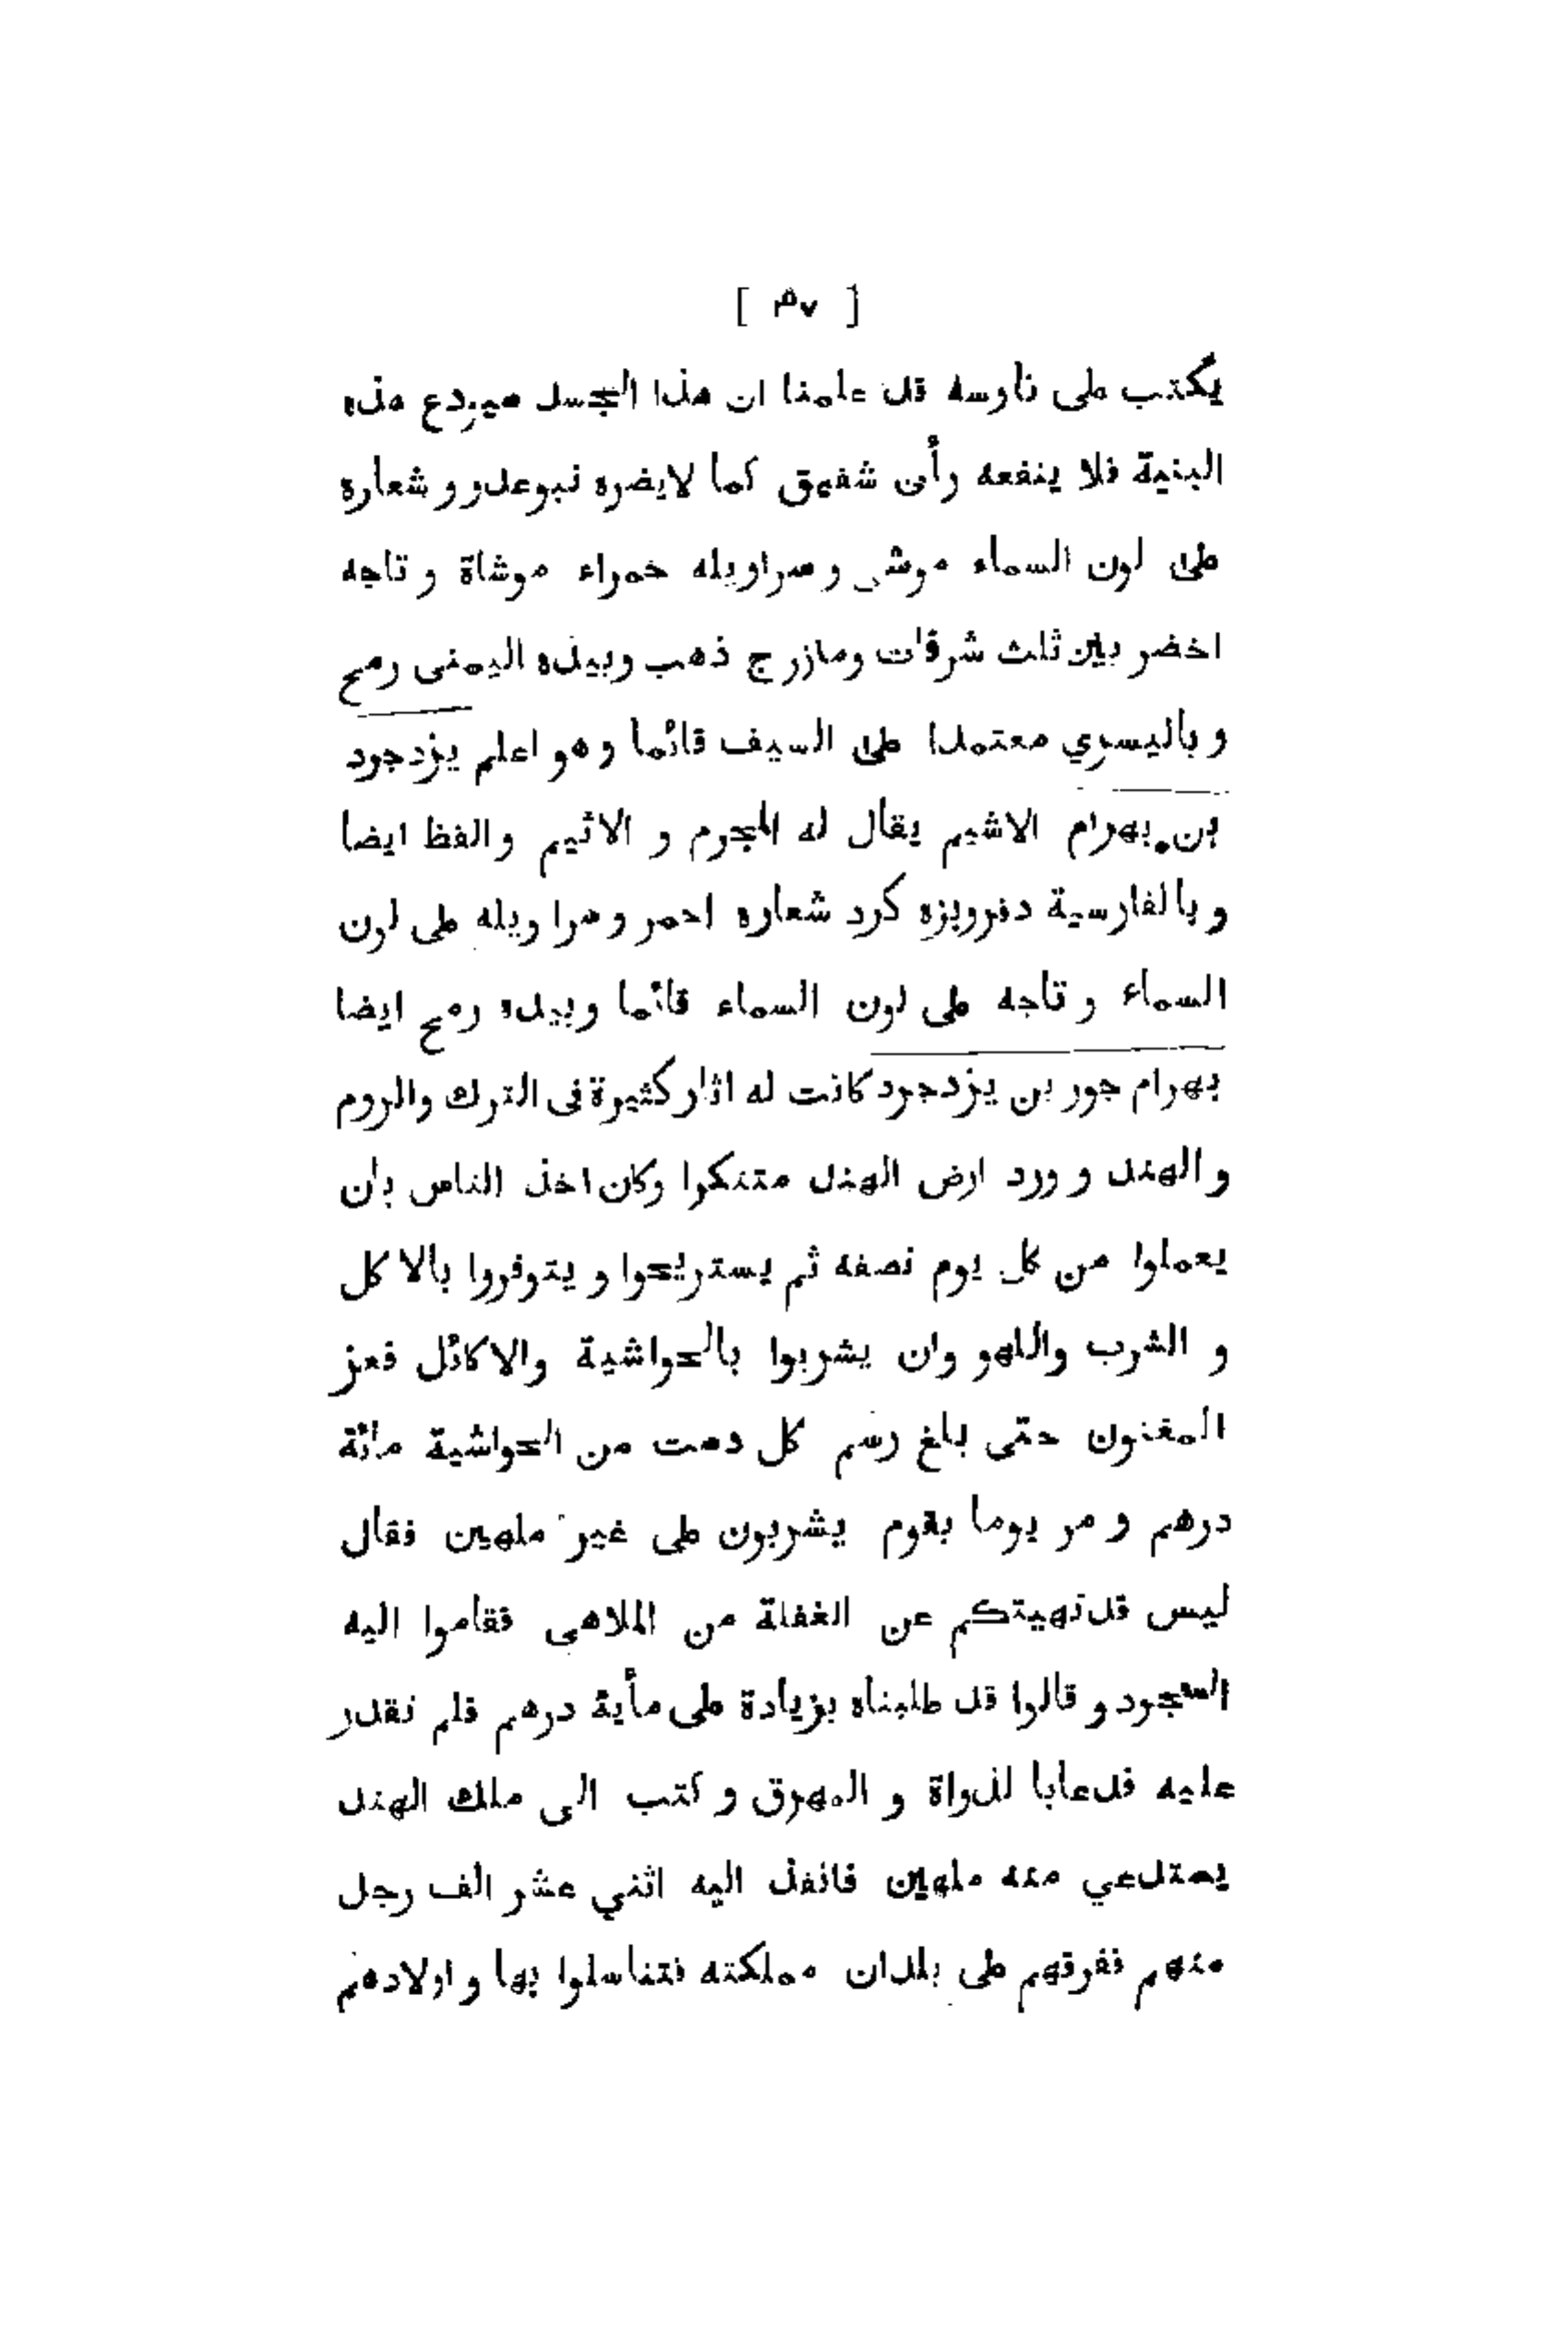 [ ٣٧ ]
يكتب على ناوسه قد علمنا ان هذا الجسد سيودع هذه
البنية فلا ينفعه رأى شفيق كما لايضره نبوعدو و شعاره
على لون السماء موشى وسراويله حمراء موشاة و تاجه
اخضر بين ثلث شرقات ومازرج ذهب وبيده اليمنى رمح
و باليسري معتمدا على السيف قائما وهو اعلم يزدجرد
بن بهرام الاشيم يقال له المجرم و الاثيم والفظ ايضا
و بالفارسية دفروبزه كرد شعاره احمر وسراويله على لون
السماء و تاجه على لون السماء قائما وبيده رمح ايضا
بهرام جور بن يزدجرد كانت له اثار كثيرة فى الترك والروم
و الهند و ورد ارض الهند متنكرا وكان اخذ الناس بان
يعملوا من كل يوم نصفه ثم يستريحوا و يتوفروا بالاكل
و الشرب واللهو وان يشربوا بالحواشية والاكائل فعز
المغنون حتى بلغ رسم كل دست من الحواشية مائة
درهم و مر يوما بقوم يشربون على غير ملهين فقال
ليس قد نهيتكم عن الغفلة من الملاهى فقاموا اليه
السجود و قالوا قد طلبناه بزيادة على مأية درهم فلم نقدر
عليه فدعابا لدواة و المهرق و كتب الى ملك الهند
يستدعي منه ملهين فانفذ اليه اثني عشر الف رجل
منهم ففرقهم على بلدان مملكته فتناسلوا بها و اولادهم